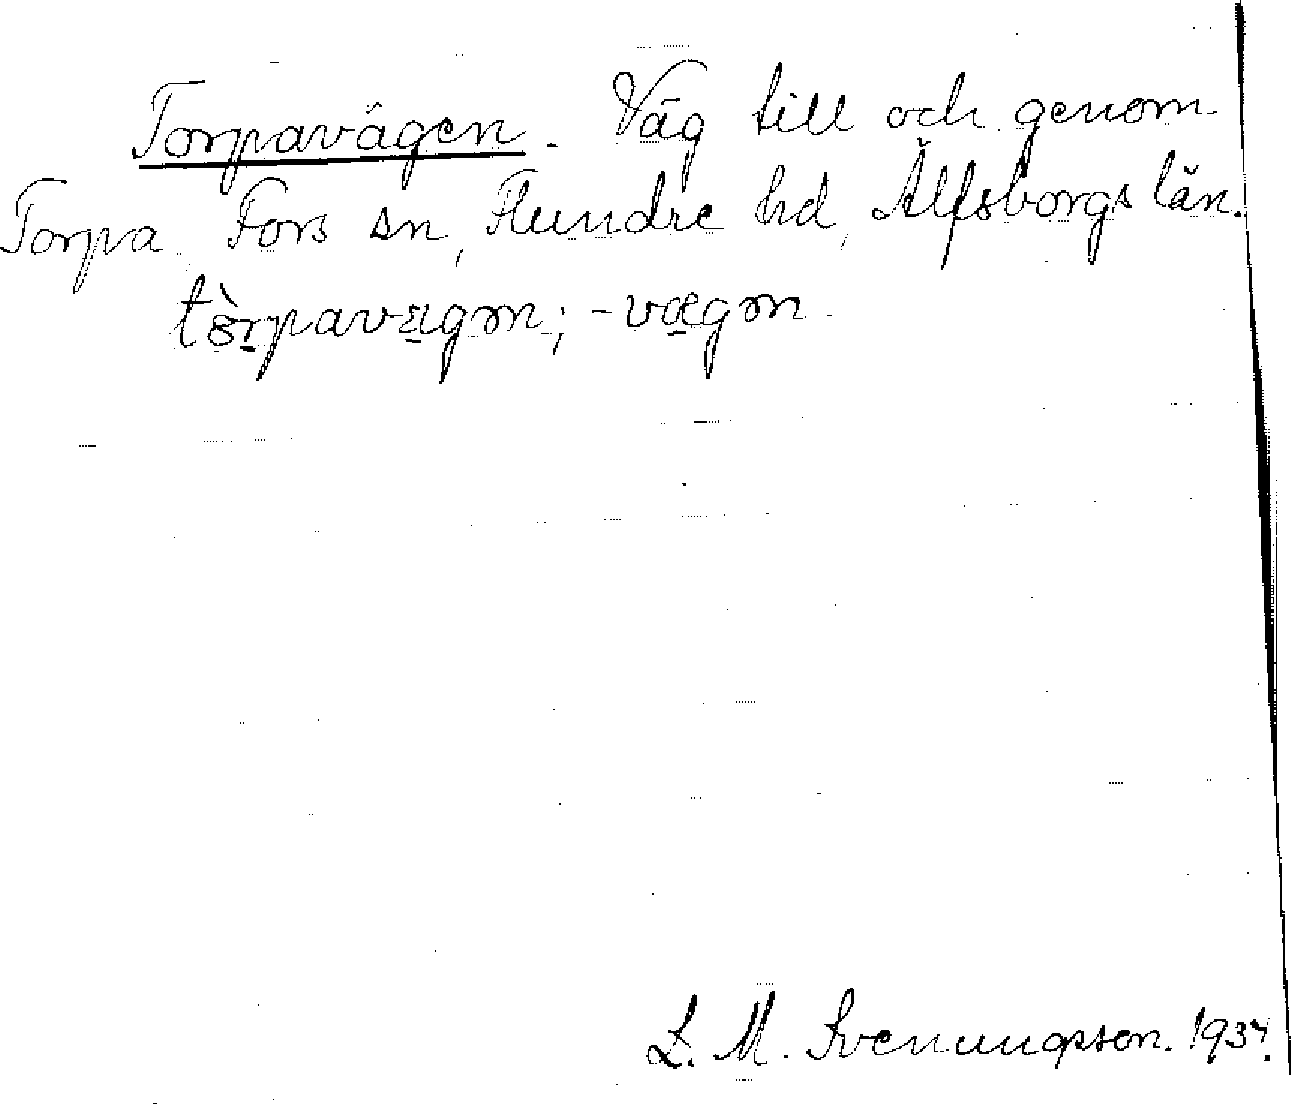 Torpavägen. Väg till och genom
Torpa. Fors sn, Flundre hd, Älfsborgs län.
tòrpavægən; -vægən.
L. M. Svenungsson. 1937.